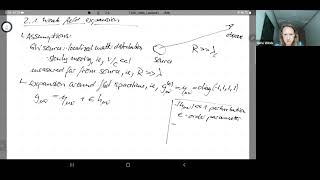 2.1 Weak field expansion
Assumptions:
GW source: localized matter distribution
slowly moving, v/c ≪ 1
measured far from source, R ≫ λ
source
R ≫ λ
expansion around flat spacetime, g_μν^(0) = η_μν = diag(-1,1,1,1)
g_μν = η_μν + ε h_μν
|h_μν| ≪ 1 perturbation
ε - order parameter